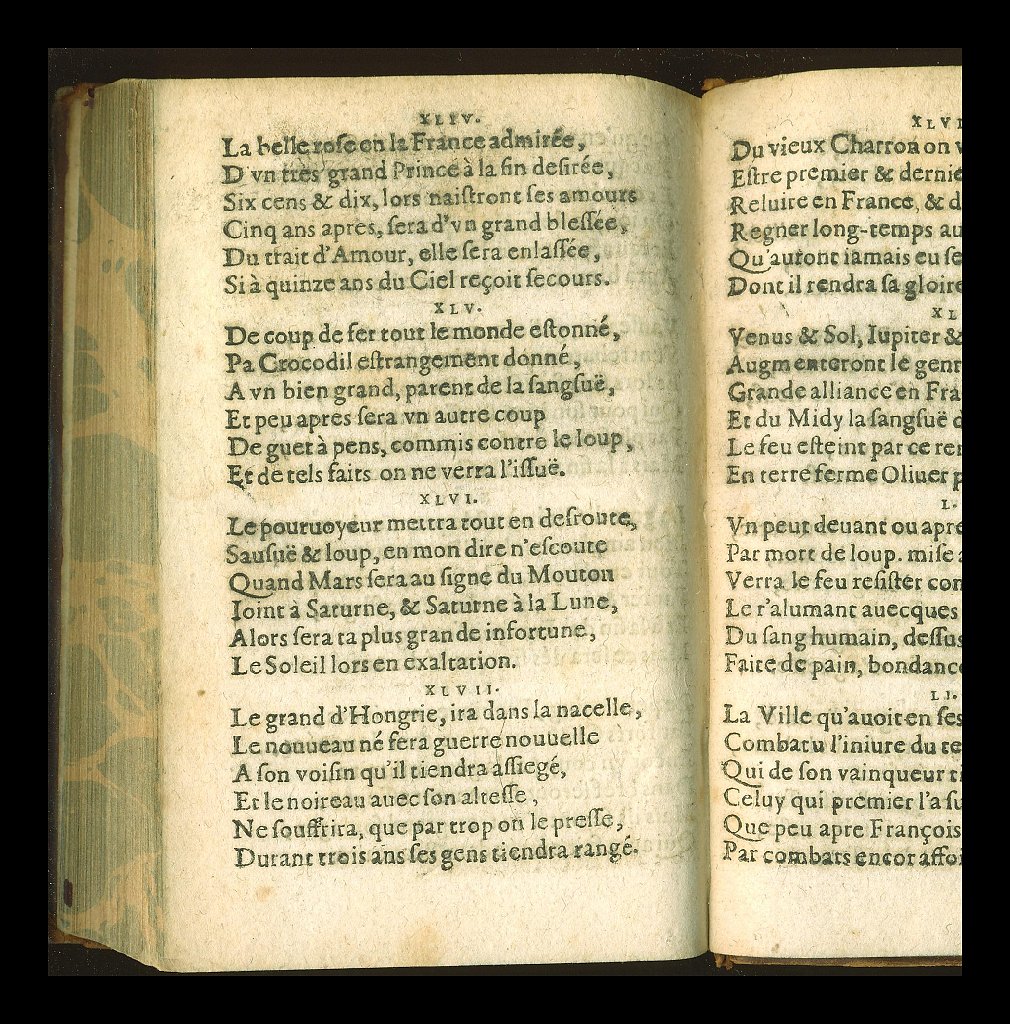 XLIV.
La belle roſe en la France admirée,
D'vn tres grand Prince à la fin deſirée,
Six cens & dix, lors naiſtront ſes amours
Cinq ans apres, ſera d'vn grand bleſſée,
Du trait d'Amour, elle ſera enlaſſée,
Si à quinze ans du Ciel reçoit ſecours.
XLV.
De coup de fer tout le monde eſtonné,
Pa Crocodil eſtrangement donné,
A vn bien grand, parent de la ſangſuë,
Et peu apres ſera vn autre coup
De guet à pens, commis contre le loup,
Et de tels faits on ne verra l'iſſuë.
XLVI.
Le pouruoyeur mettra tout en deſroute,
Sauſuë & loup, en mon dire n'eſcoute
Quand Mars ſera au ſigne du Mouton
Joint à Saturne, & Saturne à la Lune,
Alors ſera ta plus grande infortune,
Le Soleil lors en exaltation.
XLVII.
Le grand d'Hongrie, ira dans la nacelle,
Le nouueau né fera guerre nouuelle
A ſon voiſin qu'il tiendra aſſiegé,
Et le noireau auec ſon alteſſe,
Ne ſouffrira, que par trop on le preſſe,
Durant trois ans ſes gens tiendra rangé.
XLVI
Du vieux Charron on v
Eſtre premier & dernie
Reluire en France, & d
Regner long-temps au
Qu'auront iamais eu ſe
Dont il rendra ſa gloire
XL
Venus & Sol, Iupiter &
Augmenteront le genr
Grande alliance en Fra
Et du Midy la ſangſuë d
Le feu eſteint par ce rem
En terre ferme Oliuer p
L.
Vn peut deuant ou apre
Par mort de loup. miſe a
Verra le feu reſiſter con
Le r'alumant auecques
Du ſang humain, deſſus
Faite de pain, bondance
LI.
La Ville qu'auoit en ſes
Combatu l'iniure du te
Qui de ſon vainqueur ti
Celuy qui premier l'a ſu
Que peu apre François
Par combats encor affoi